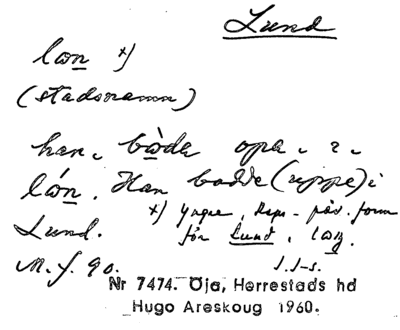 Lund
lon *)
(stadsnamn)
han. bòda opa. i.
lón. Han bodde (uppe) i
Lund.
*) yngre,
form
för Lund.
M. f. 90.
J. J-s.
Nr 7474. Öja, Herrestads hd
Hugo Areskoug 1960.